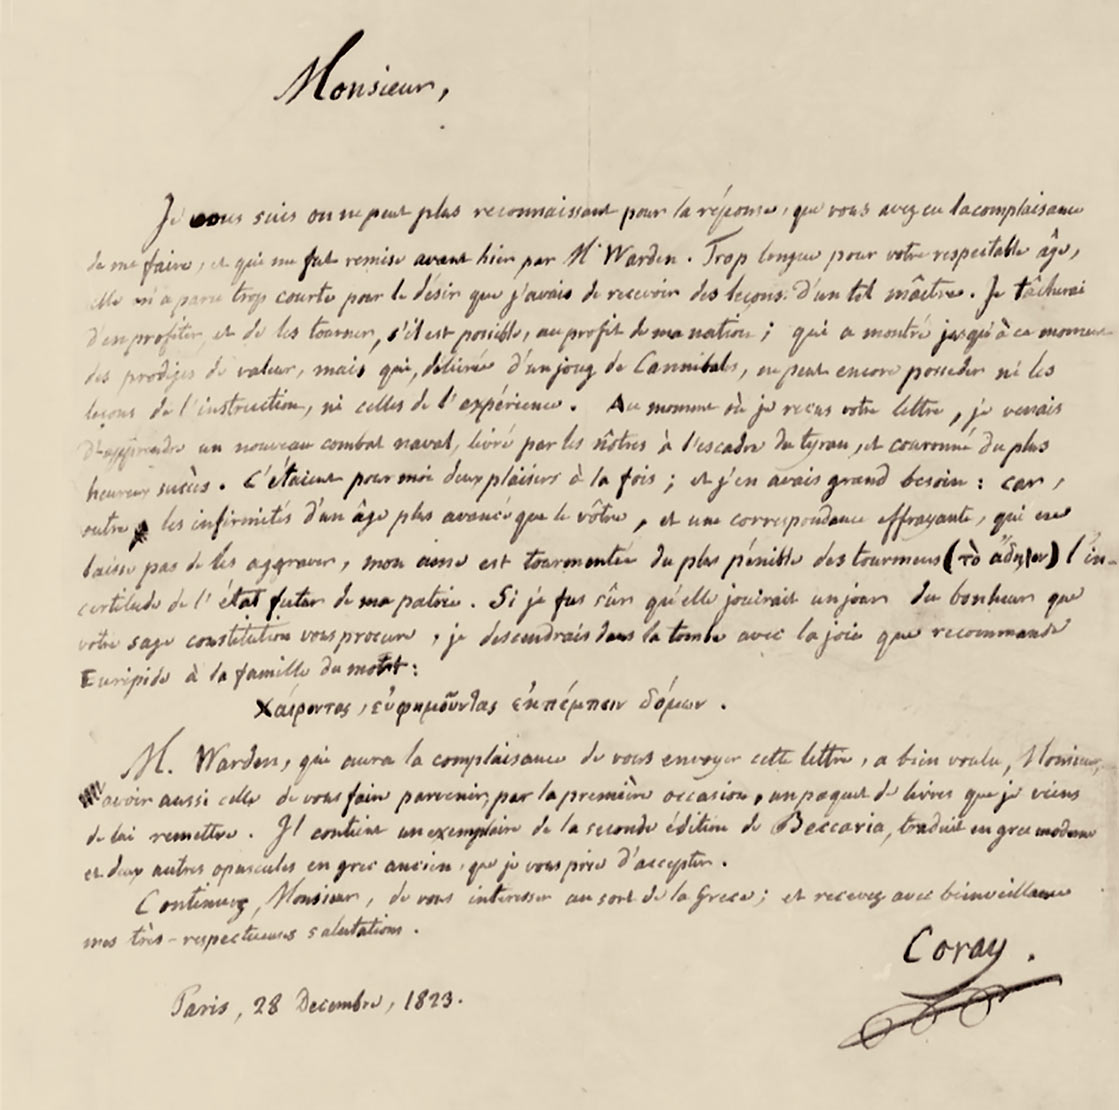 Monsieur,
Je vous suis on ne peut plus reconnaissant pour la réponse, que vous avez eu la complaisance
de me faire, et que me fut remise avant hier par Mr Warden. Trop longue pour votre respectable âge,
elle m'a paru trop courte pour le désir que j'avais de recevoir des leçons d'un tel maître. Je tâcherai
d'en profiter, et de les tourner, s'il est possible, au profit de ma nation; qui a montré jusqu'à ce moment
des prodiges de valeur, mais qui, délivrée d'un joug de Cannibales, ne peut encore posseder ni les
leçons de l'instruction, ni celles de l'expérience. Au moment où je reçus votre lettre, je venais
d'apprendre un nouveau combat naval, livré par les nôtres à l'escadre du tyran, et couronné du plus
heureux succès. C'étaient pour moi deux plaisirs à la fois; et j'en avais grand besoin: car,
outre les infirmités d'un âge plus avancé que le vôtre, et une correspondance effrayante, qui ne
laisse pas de les aggraver, mon ame est tourmentée du plus pénible des tourmens (τὸ ἄδηλον) l'in-
certitude de l'état futur de ma patrie. Si je fus sûr qu'elle jouirait un jour du bonheur que
votre sage constitution vous procure, je descendrais dans la tombe avec la joie que recommande
Euripide à la famille du mort:
Χαίροντας, εὐφημοῦντας ἐκπέμπειν δόμων.
M. Warden, qui aura la complaisance de vous envoyer cette lettre, a bien voulu, Monsieur,
avoir aussi celle de vous faire parvenir, par la première occasion, un paquet de livres que je viens
de lui remettre. Il contient un exemplaire de la seconde édition de Beccaria, traduit en grec moderne
et deux autres opuscules en grec ancien, que je vous prie d'accepter.
Continuez, Monsieur, de vous intéresser au sort de la Grèce; et recevez avec bienveillance
mes très-respectueuses salutations.
Coray.
Paris, 28 Decembre, 1823.